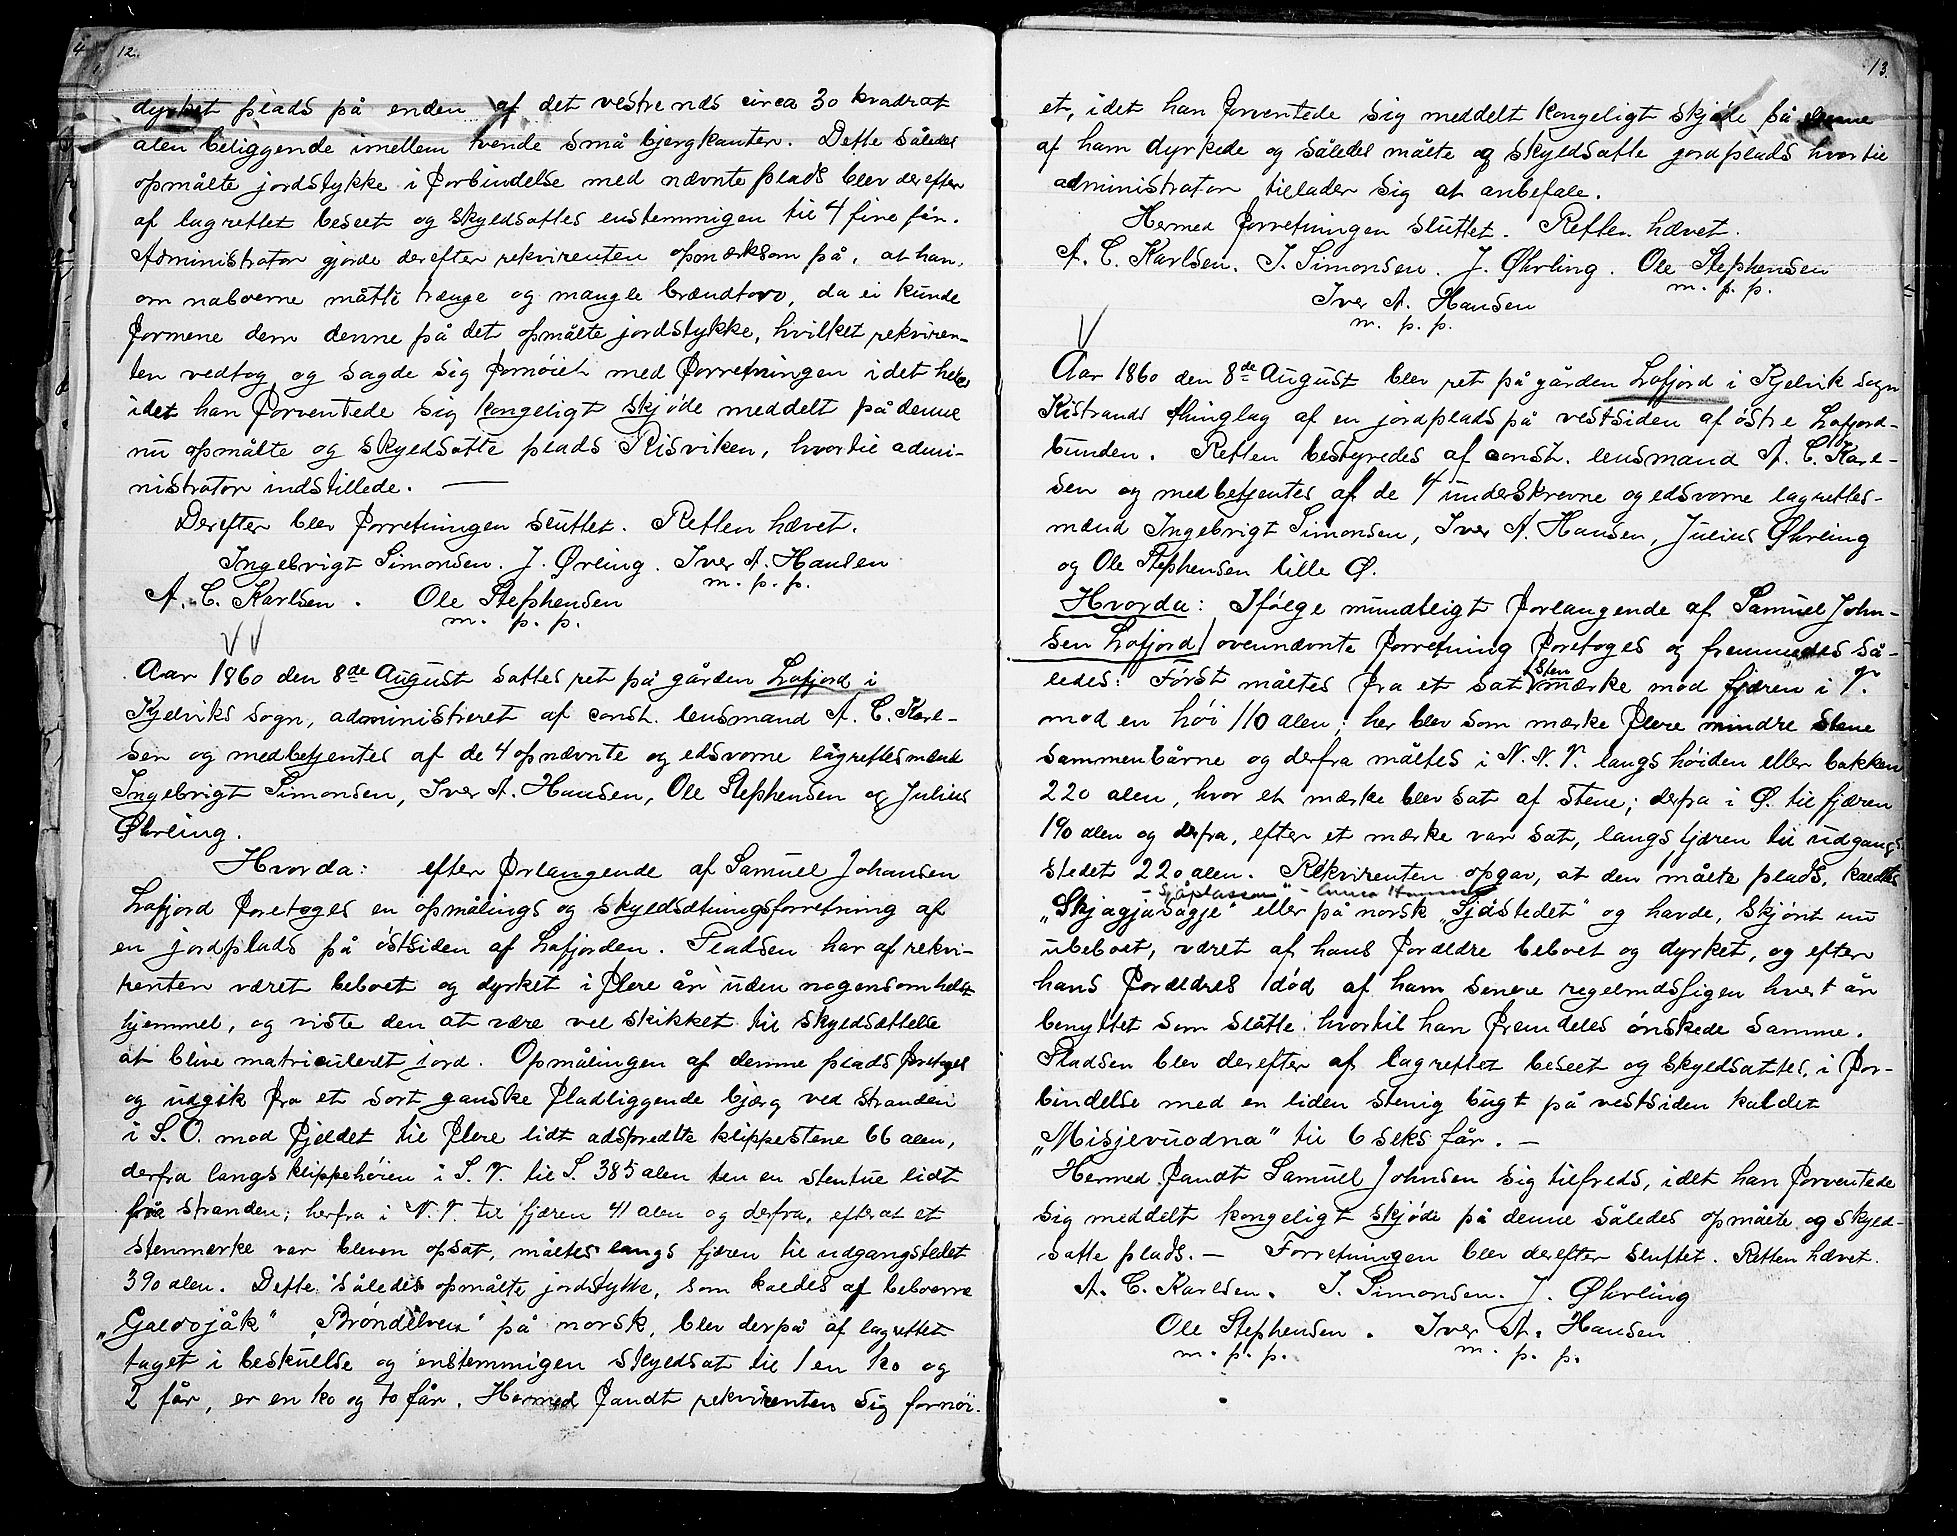 12.
dyrket plads på enden af det vestre nds circa 30 kvadrat
alen beliggende imellem tvende små bjergkanter. Dette således
opmålte jordstykke i forbindelse med nævnte plads blev derefter
af lagrettet beseet og skyldsattes enstemmigen til 4 fire får.
Administrator gjorde derefter rekvirenten opmærksom på, at han,
om naboerne måtte trænge og mangle brændtorv, da ei kunde
formene dem denne på det opmålte jordstykke, hvilket rekviren-
ten vedtog, og sagde sig fornöiet med forretningen i det hele
idet han forventede sig kongeligt skjöde meddelt på denne
nu opmålte og skyldsatte plads Risviken, hvortil admi-
nistrator indstillede. —
Derefter blev forretningen sluttet. Retten hævet.
Ingebrigt Simonsen. J. Örling. Iver A. Hansen
m. p. p.
A. C. Karlsen. Ole Stephensen
m. p. p.
Aar 1860 den 8de August sattes ret på gården Lafjord i
Kjelviks sogn, administreret af const. lensmand A. C. Karl-
sen og medbetjentes af de 4 opnævnte og edsvorne lagrettesmænd
Ingebrigt Simonsen, Iver A. Hansen, Ole Stephensen og Julius
Öhrling.
Hvorda: efter forlangende af Samuel Johansen
Lafjord foretoges en opmålings og skyldsætningsforretning af
en jordplads på östsiden af Lafjorden. Pladsen har af rekvi-
renten været beboet og dyrket i flere år uden nogensomhelst
hjemmel, og viste den at være vel skikket til skyldsættelse
at blive matriculeret jord. Opmålingen af denne plads foretoges
og udgik fra et sort ganske fladliggende bjærg ved stranden
i S. O. mod fjeldet til flere lidt adspredte klippestene 66 alen,
derfra langs klippehöien i S. V. til S. 385 alen ten en stentue lidt
fra stranden; herfra i N. V. til fjæren 41 alen og derfra, efter at et
stenmærke var bleven opsat, måltes langs fjæren til udgangstedet
390 alen. Dette således opmålte jordstykke, som kaldes af beboerne
„Galvojåk" „Bröndelven" på norsk, blev derpå af lagrettet
taget i beskuelse og enstemmigen skyldsat til 1 en ko og
2 får, er en ko og to får. Hermed fandt rekvirenten sig fornöi-
13.
et, idet han forventede sig meddelt kongeligt skjöde på denne
af ham dyrkede og således målte og skyldsatte jordplads hvortil
administrator tillader sig at anbefale.
Hermed forretningen sluttet. Retten hævet.
A. C. Karlsen. I. Simonsen. J. Öhrling. Ole Stephensen
m. p. p.
Iver A. Hansen
m. p. p.
Aar 1860 den 8de August blev ret på gården Lafjord i Kjelvik sogn
Kistrands thinglag af en jordplads på vestsiden af östre Lafjord-
bunden. Retten bestyredes af const. lensmand A. C. Karl-
sen og medbetjentes af de 4 underskrevne og edsvorne lagrettes-
mænd Ingebrigt Simonsen, Iver A. Hansen, Julius Öhrling
og Ole Stephensen lille Ö.
Hvorda: Ifölge mundtligt forlangende af Samuel John-
sen Lafjord ovennævnte forretning foretoges og fremmedes så-
ledes: Först måltes fra et sat sten mærke mod fjæren i V.
mod en höi 110 alen; her blev som mærke flere mindre stene
sammenbårne og derfra måltes i N. N. V. langs höiden eller bakken
220 alen, hvor et mærke blev sat af stene; derfra i Ö. til fjæren
190 alen og derfra, efter et mærke var sat, langs fjæren til udgangs
stedet 220 alen. Rekvirenten opgav, at den målte plads, kaldtes
- Sjåplassen" -
„Skjagjåsagje" eller på norsk „Sjåstedet" og havde, skjönt nu
ubeboet, været af hans forældre beboet og dyrket, og efter
hans forældres död af ham senere regelmæssigen hvert år
benyttet som slåtte: hvortil han fremdeles önskede samme.
Pladsen blev derefter af lagrettet beseet og skyldsattes, i for-
bindelse med en liden stenig bugt på vestsiden kaldet
„Misjevuodna" til 6 seks får. —
Hermed fandt Samuel Johnsen sig tilfreds, idet han forventede
sig meddelt kongeligt skjöde på denne således opmålte og skyld-
satte plads. — Forretningen blev derefter sluttet. Retten hævet.
A. C. Karlsen. I. Simonsen. J. Öhrling
Ole Stephensen. Iver A. Hansen
m. p. p. m. p. p.